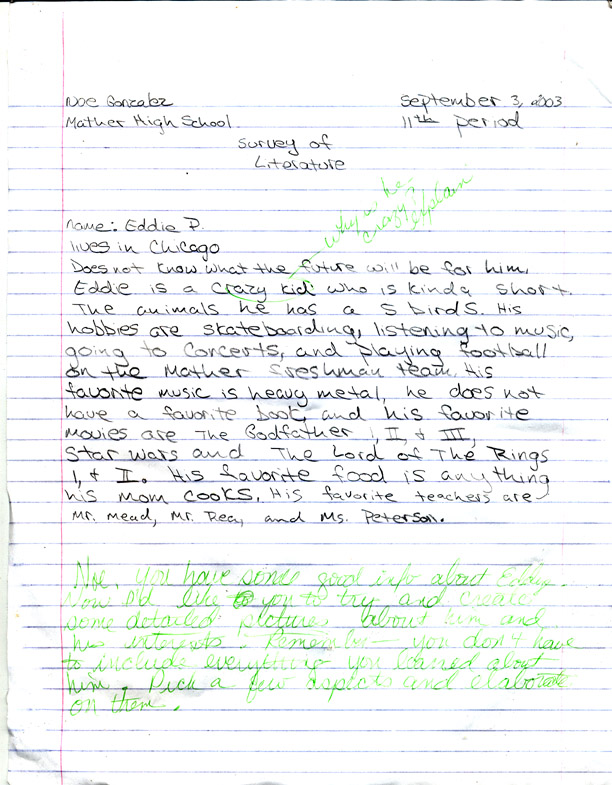 Noe Gonzalez
September 3, 2003
Mather High School
11th period
Survey of
Literature
why is he
crazy?
explain
name: Eddie P.
lives in Chicago
Does not know what the future will be for him.
Eddie is a crazy kid who is kinda short.
The animals he has a 5 birds. His
hobbies are skateboarding, listening to music,
going to concerts, and playing football
on the Mather freshman team. His
favorite music is heavy metal, he does not
have a favorite book, and his favorite
movies are The Godfather I, II, & III,
Star Wars and The Lord of The Rings
I, & II. His favorite food is anything
his mom cooks. His favorite teachers are
Mr. Mead, Mr. Rea, and Ms. Peterson.
Noe, you have some good info about Eddy.
Now I'd like you to try and create
some detailed pictures about him and
his interests. Remember — you don't have
to include everything you learned about
him. Pick a few aspects and elaborate
on them.